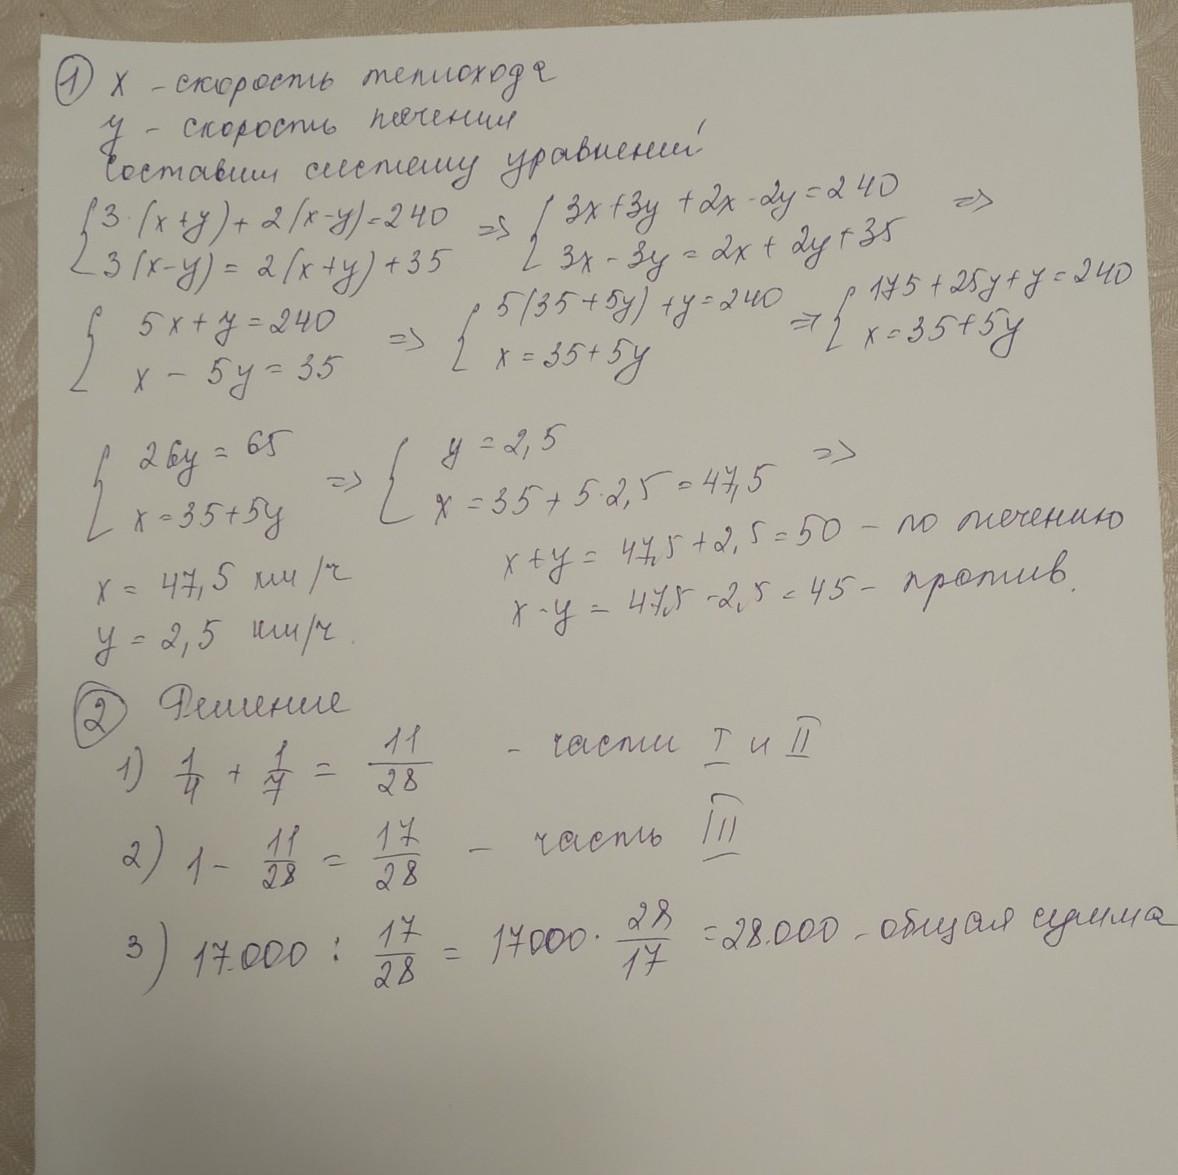 ① x - скорость теплохода
y - скорость течения
Составим систему уравнений
{ 3·(x+y)+2(x-y)=240 => { 3x+3y+2x-2y=240 =>
{ 3(x-y)=2(x+y)+35 { 3x-3y=2x+2y+35
{ 5x+y=240 => { 5(35+5y)+y=240 => { 175+25y+y=240
{ x-5y=35 { x=35+5y { x=35+5y
{ 26y=65 => { y=2,5 =>
{ x=35+5y { x=35+5·2,5=47,5
x=47,5 км/ч x+y=47,5+2,5=50 - по течению
y=2,5 км/ч. x-y=47,5-2,5=45 - против.
② Решение
1) 1/4 + 1/7 = 11/28 - части I и II
2) 1 - 11/28 = 17/28 - часть III
3) 17.000 : 17/28 = 17000 · 28/17 = 28.000 - общая сумма